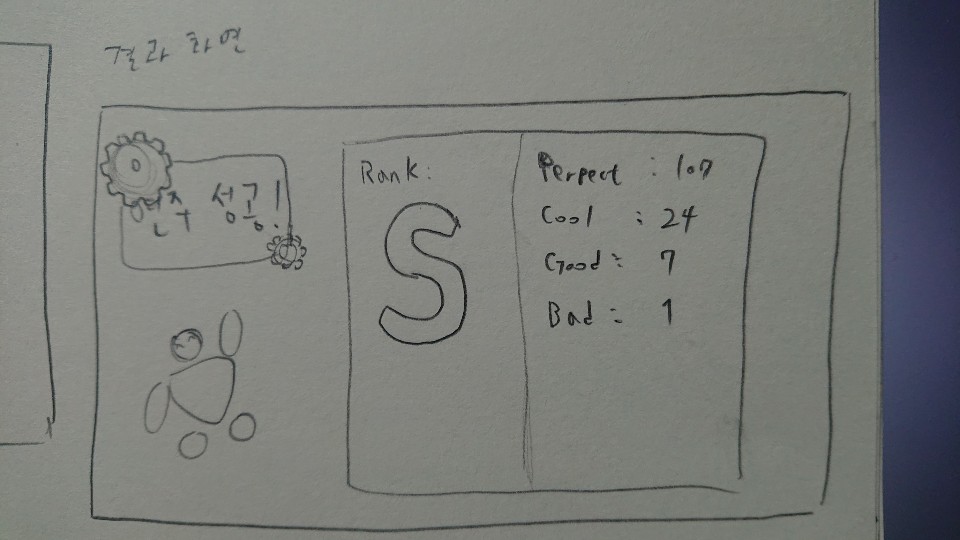 결과 화면
연주 성공!
Rank:
S
Perpect : 107
Cool : 24
Good : 7
Bad : 1